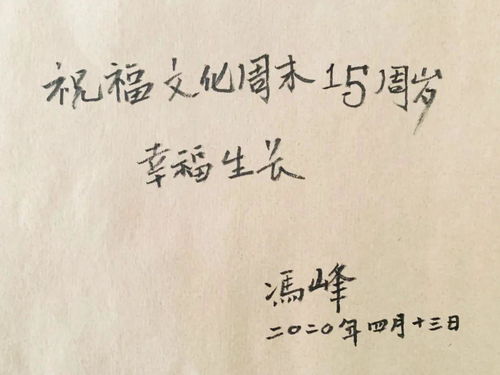 祝福文化周末15周岁
幸福生长
馮峰
二〇二〇年四月十三日